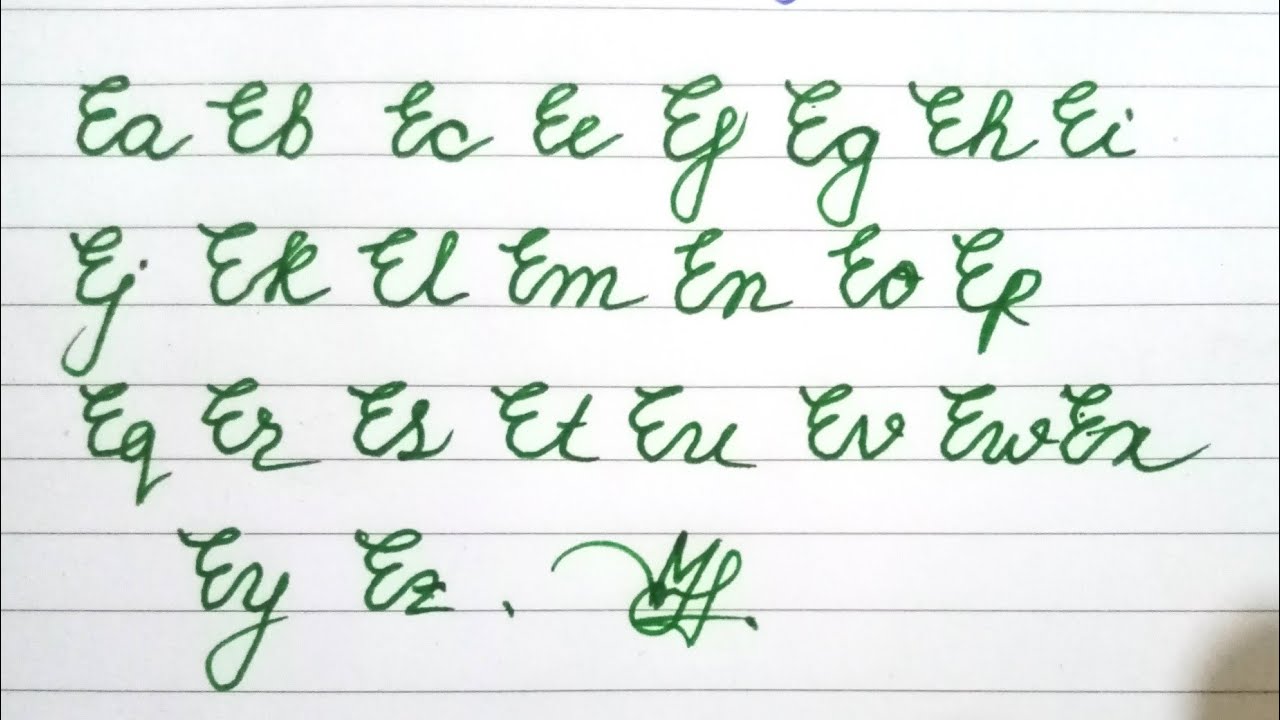 Ea Eb Ec Ee Ef Eg Eh Ei
Ej Ek El Em En Eo Ep
Eq Er Es Et Eu Ev Ew Ex
Ey Ez .